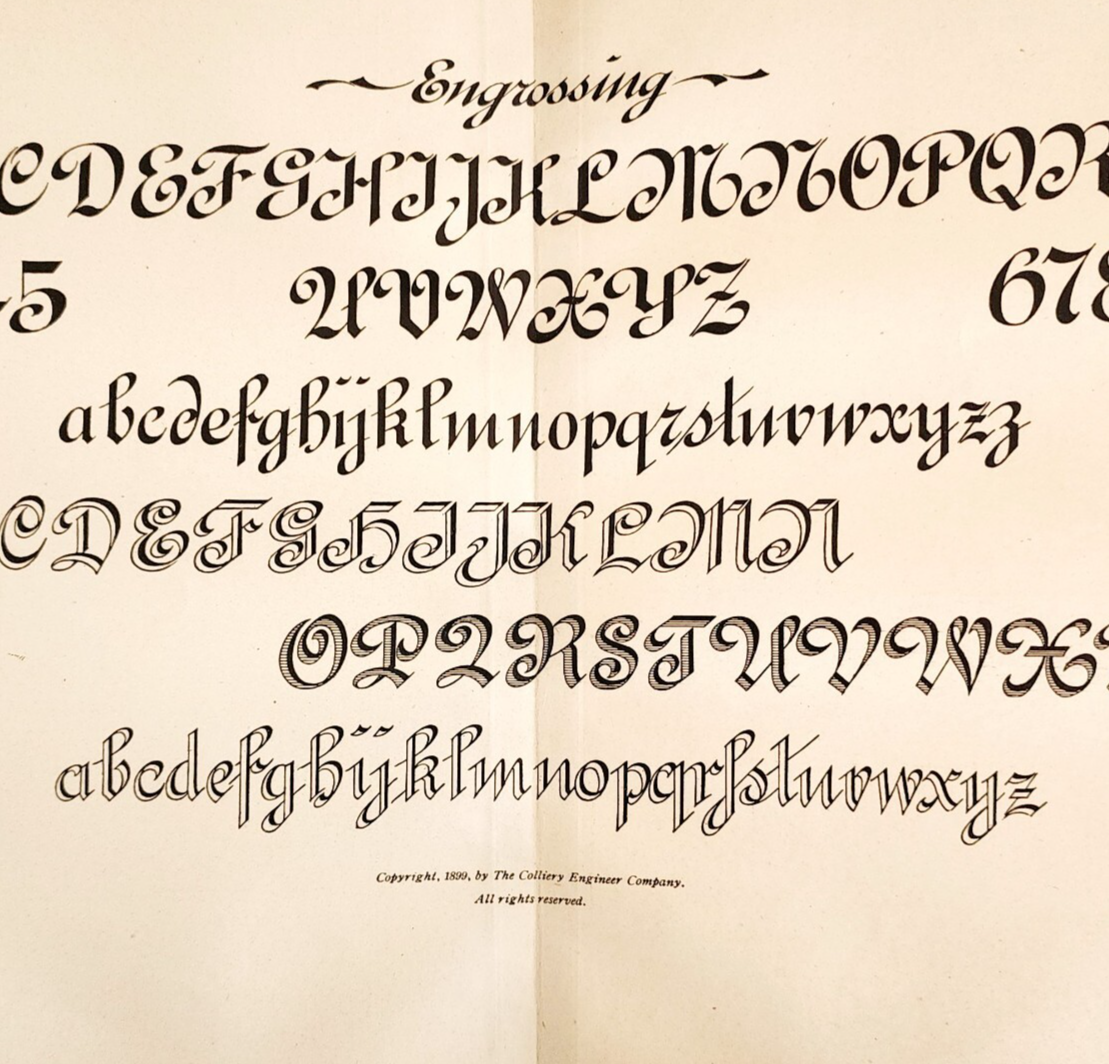 Engrossing
CDEFGHIJKLMNOPQR
5 UVWXYZ 678
abcdefghijklmnopqrstuvwxyzz
CDEFGHIJKLMN
OPQRSTUVWX
abcdefghijklmnopqrſstuvwxyz
Copyright, 1899, by The Colliery Engineer Company.
All rights reserved.